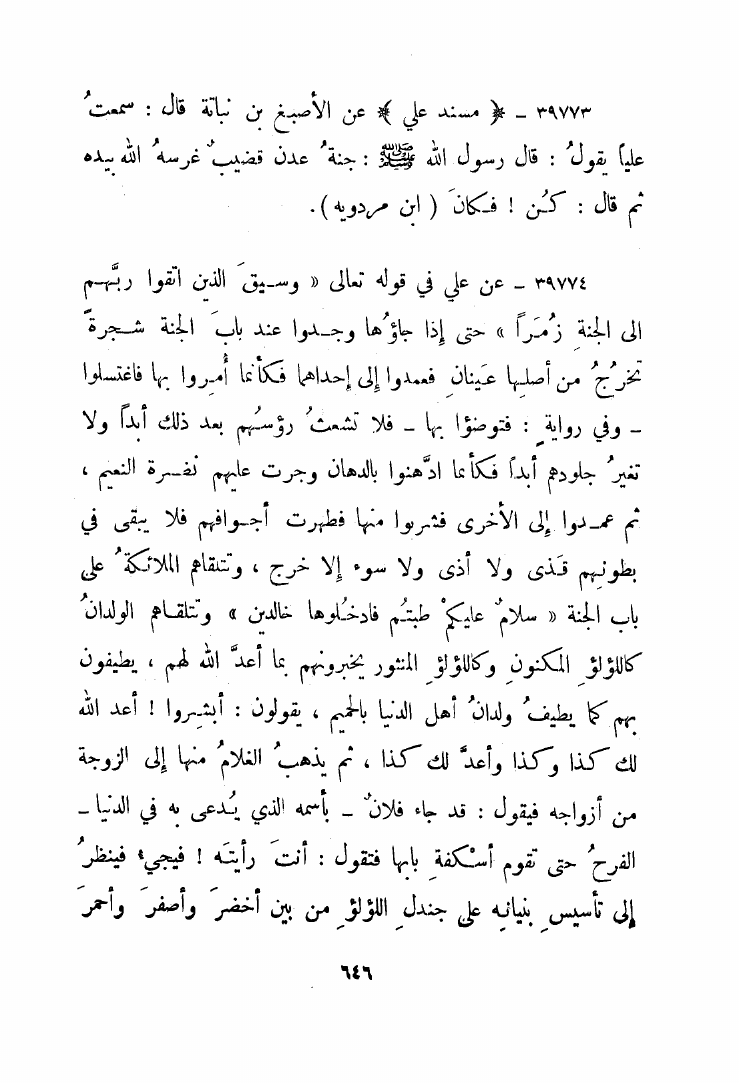 ٣٩٧٧٣ ـ ﴿ مسند علي ﴾ عن الأصبغ بن نباتة قال : سمعتُ
علياً يقولُ : قال رسول الله ﷺ : جنةُ عدن قضيبٌ غرسهُ الله بيده
ثم قال : كُن ! فكانَ ( ابن مردويه ) .
٣٩٧٧٤ ـ عن علي في قوله تعالى « وسيقَ الذين اتقوا ربَّهم
الى الجنةِ زُمَراً » حتى إذا جاؤُها وجدوا عند بابَ الجنة شجرةً
تخرُجُ من أصلِها عَينانِ فعمدوا إلى إحداهما فكأنما أُمِروا بها فاغتسلوا
ـ وفي روايةٍ : فتوضؤا بها ـ فلا تشعثُ رؤسُهم بعد ذلك أبداً ولا
تغيرُ جلودهم أبداً فكأنما ادَّهنوا بالدهان وجرت عليهم نضرة النعيم ،
ثم عمدوا إلى الأخرى فشربوا منها فطهرت أجوافهم فلا يبقى في
بطونِهم قَذى ولا أذى ولا سوء إلا خرج ، وتتلقاهم الملائكةُ على
باب الجنة « سلامٌ عليكمْ طبتُم فادخُلوها خالدين » وتتلقاهم الولدانُ
كاللؤلؤِ المكنونِ وكاللؤلؤِ المنثور يخبرونهم بما أعدَّ الله لهم ، يطيفون
بهم كما يطيفُ ولدانُ أهل الدنيا بالحميم ، يقولون : أبشِروا ! أعد الله
لك كذا وكذا وأعدَّ لك كذا ، ثم يذهبُ الغلامُ منها إلى الزوجة
من أزواجه فيقول : قد جاء فلانٌ ـ بأسمه الذي يُدعى به في الدنيا ـ
الفرحُ حتى تقوم أسْكفةِ بابها فتقول : أنتَ رأيتَه ! فيجيء فينظرُ
إلى تأسيسِ بنيانِه على جندلِ اللؤلؤِ من بين أخضرَ وأصفرَ وأحمرَ
٦٤٦